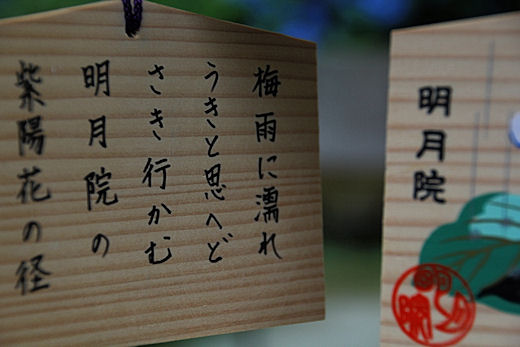 梅雨に濡れ
うきと思へど
さき行かむ
明月院の
紫陽花の径
明月院